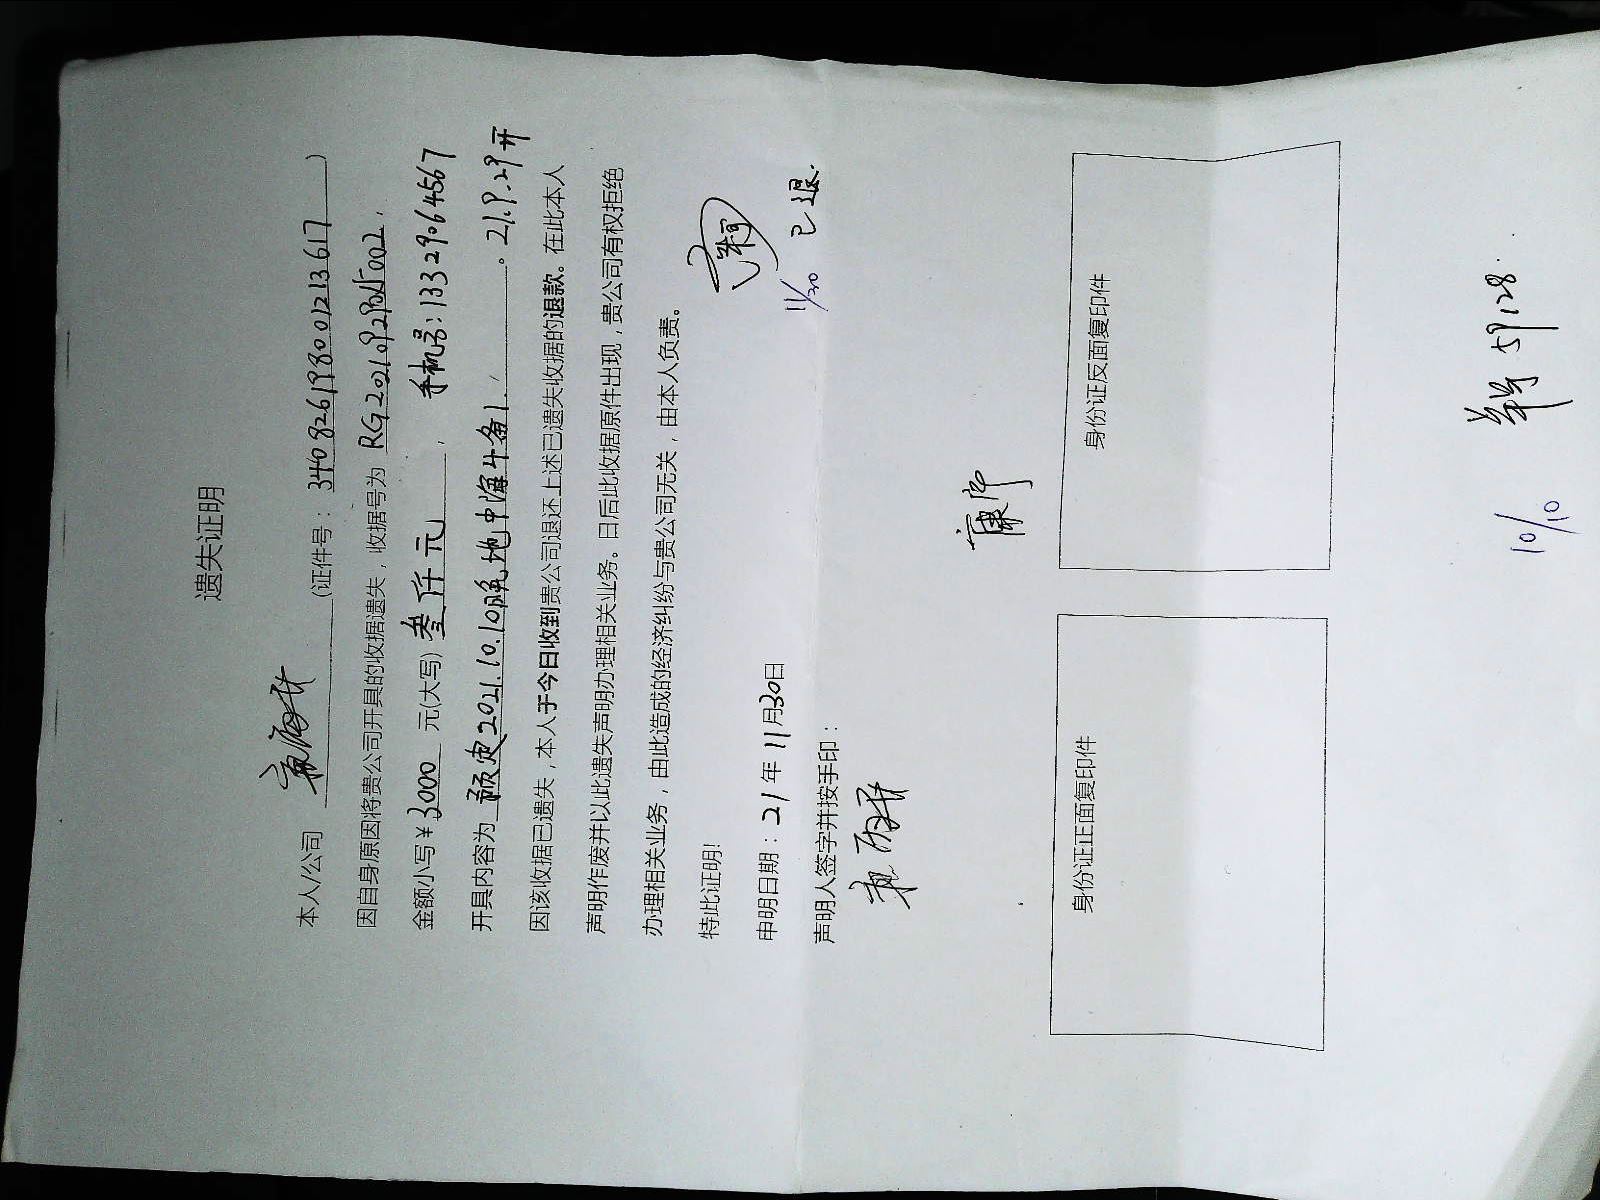 遗失证明
本人/公司 (证件号：340826198001213617)
因自身原因将贵公司开具的收据遗失，收据号为 RG20210929215002，
金额小写￥3000 元(大写) 叁仟元， 手机号：13329064567
开具内容为 预定2021.10.10晚地中海斗备1. 。21.9.29开
因该收据已遗失，本人于今日收到贵公司退还上述已遗失收据的退款。在此本人
声明作废并以此遗失声明办理相关业务。日后此收据原件出现，贵公司有权拒绝
办理相关业务，由此造成的经济纠纷与贵公司无关，由本人负责。
特此证明!
11/30 已退.
申明日期：21年11月30日
声明人签字并按手印：
康序
身份证正面复印件
身份证反面复印件
10/10 59128.